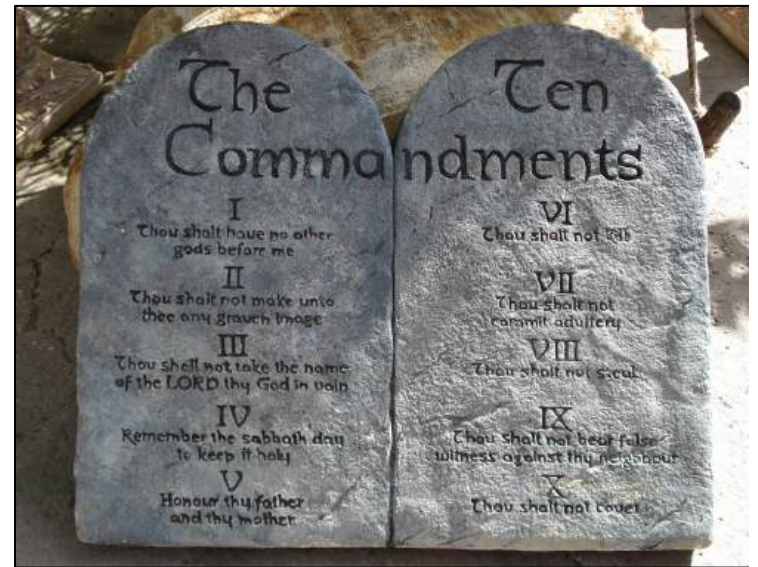 The Ten
Commandments
I
Thou shalt have no other
gods before me
II
Thou shalt not make unto
thee any graven image
III
Thou shalt not take the name
of the LORD thy God in vain
IV
Remember the sabbath day
to keep it holy
V
Honour thy father
and thy mother
VI
Thou shalt not
VII
Thou shalt not
commit adultery
VIII
Thou shalt not steal
IX
Thou shalt not bear false
witness against thy neighbour
X
Thou shalt not covet